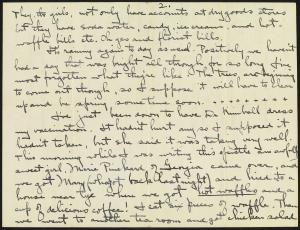 2.
They the girls, not only have accounts at dry goods stores
but they have soda water, candy, ice cream and hot-
waffle bills etc. Cages and florist bills.
It's raining again to-day as usual. Positively we haven't
had a day that was bright all through for so long I've
most forgotten what they're like. The trees are beginning
to come out though, so I suppose it will have to clear
up and be spring, sometime soon.
I've just been down to have Dr. Kimball dress
my vaccination. It hadn't hurt any so I supposed it
hadn't taken, but she said it was taking well.
This morning while I was writing this epistle, an awfully
sweet girl, Marie Pinkard of Georgia came over, and
we got Mary (who got back last night) and hied to a
house near by where we got hot waffles and a
cup of delicious coffee. I eat six pieces of waffle. Then
we went to another tea room and got chicken salad